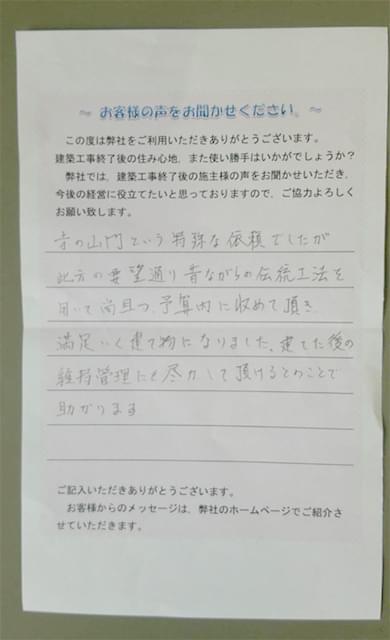 ～ お客様の声をお聞かせください。 ～
この度は弊社をご利用いただきありがとうございます。
建築工事終了後の住み心地、また使い勝手はいかがでしょうか？
弊社では、建築工事終了後の施主様の声をお聞かせいただき、
今後の経営に役立てたいと思っておりますので、ご協力よろしく
お願い致します。
寺の山門という特殊な依頼でしたが
此方の要望通り昔ながらの伝統工法を
用いて尚且つ、予算内に収めて頂き
満足いく建て物になりました。建てた後の
維持管理にも尽力して頂けるとのことで
助かります
ご記入いただきありがとうございます。
お客様からのメッセージは、弊社のホームページでご紹介さ
せていただきます。